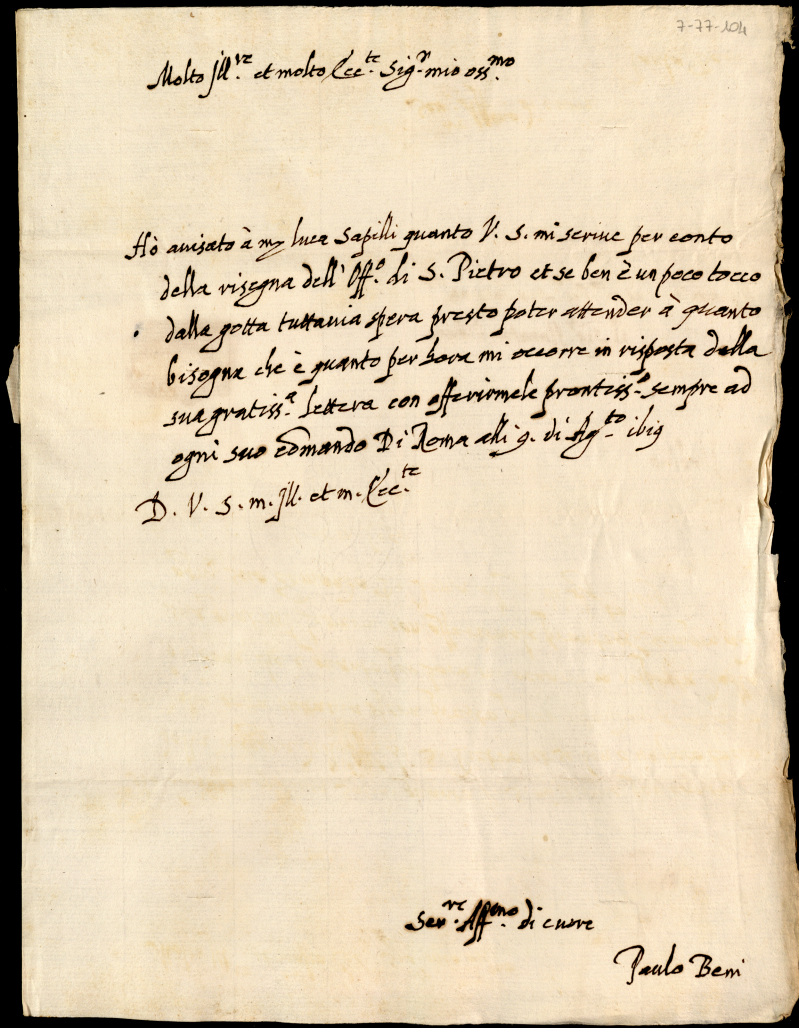 7-77-104
Molto Ill.re et molto Ecc.te Sig.r mio oss.mo
Hò auisato à m Luca Sapilli quanto V. S. mi scriue per conto
della risegna dell' Off.o di S. Pietro et se ben è un poco tocco
dalla gotta tuttauia spera presto poter attender à quanto
bisogna che è quanto per hora mi occorre in risposta della
sua gratiss.a lettera con offerirmele prontiss.o sempre ad
ogni suo comando Di Roma alli 9. di Ag.to 1619
D. V. S. m. Ill. et m. Ecc.te
Ser.re Aff.mo di cuore
Paulo Beni